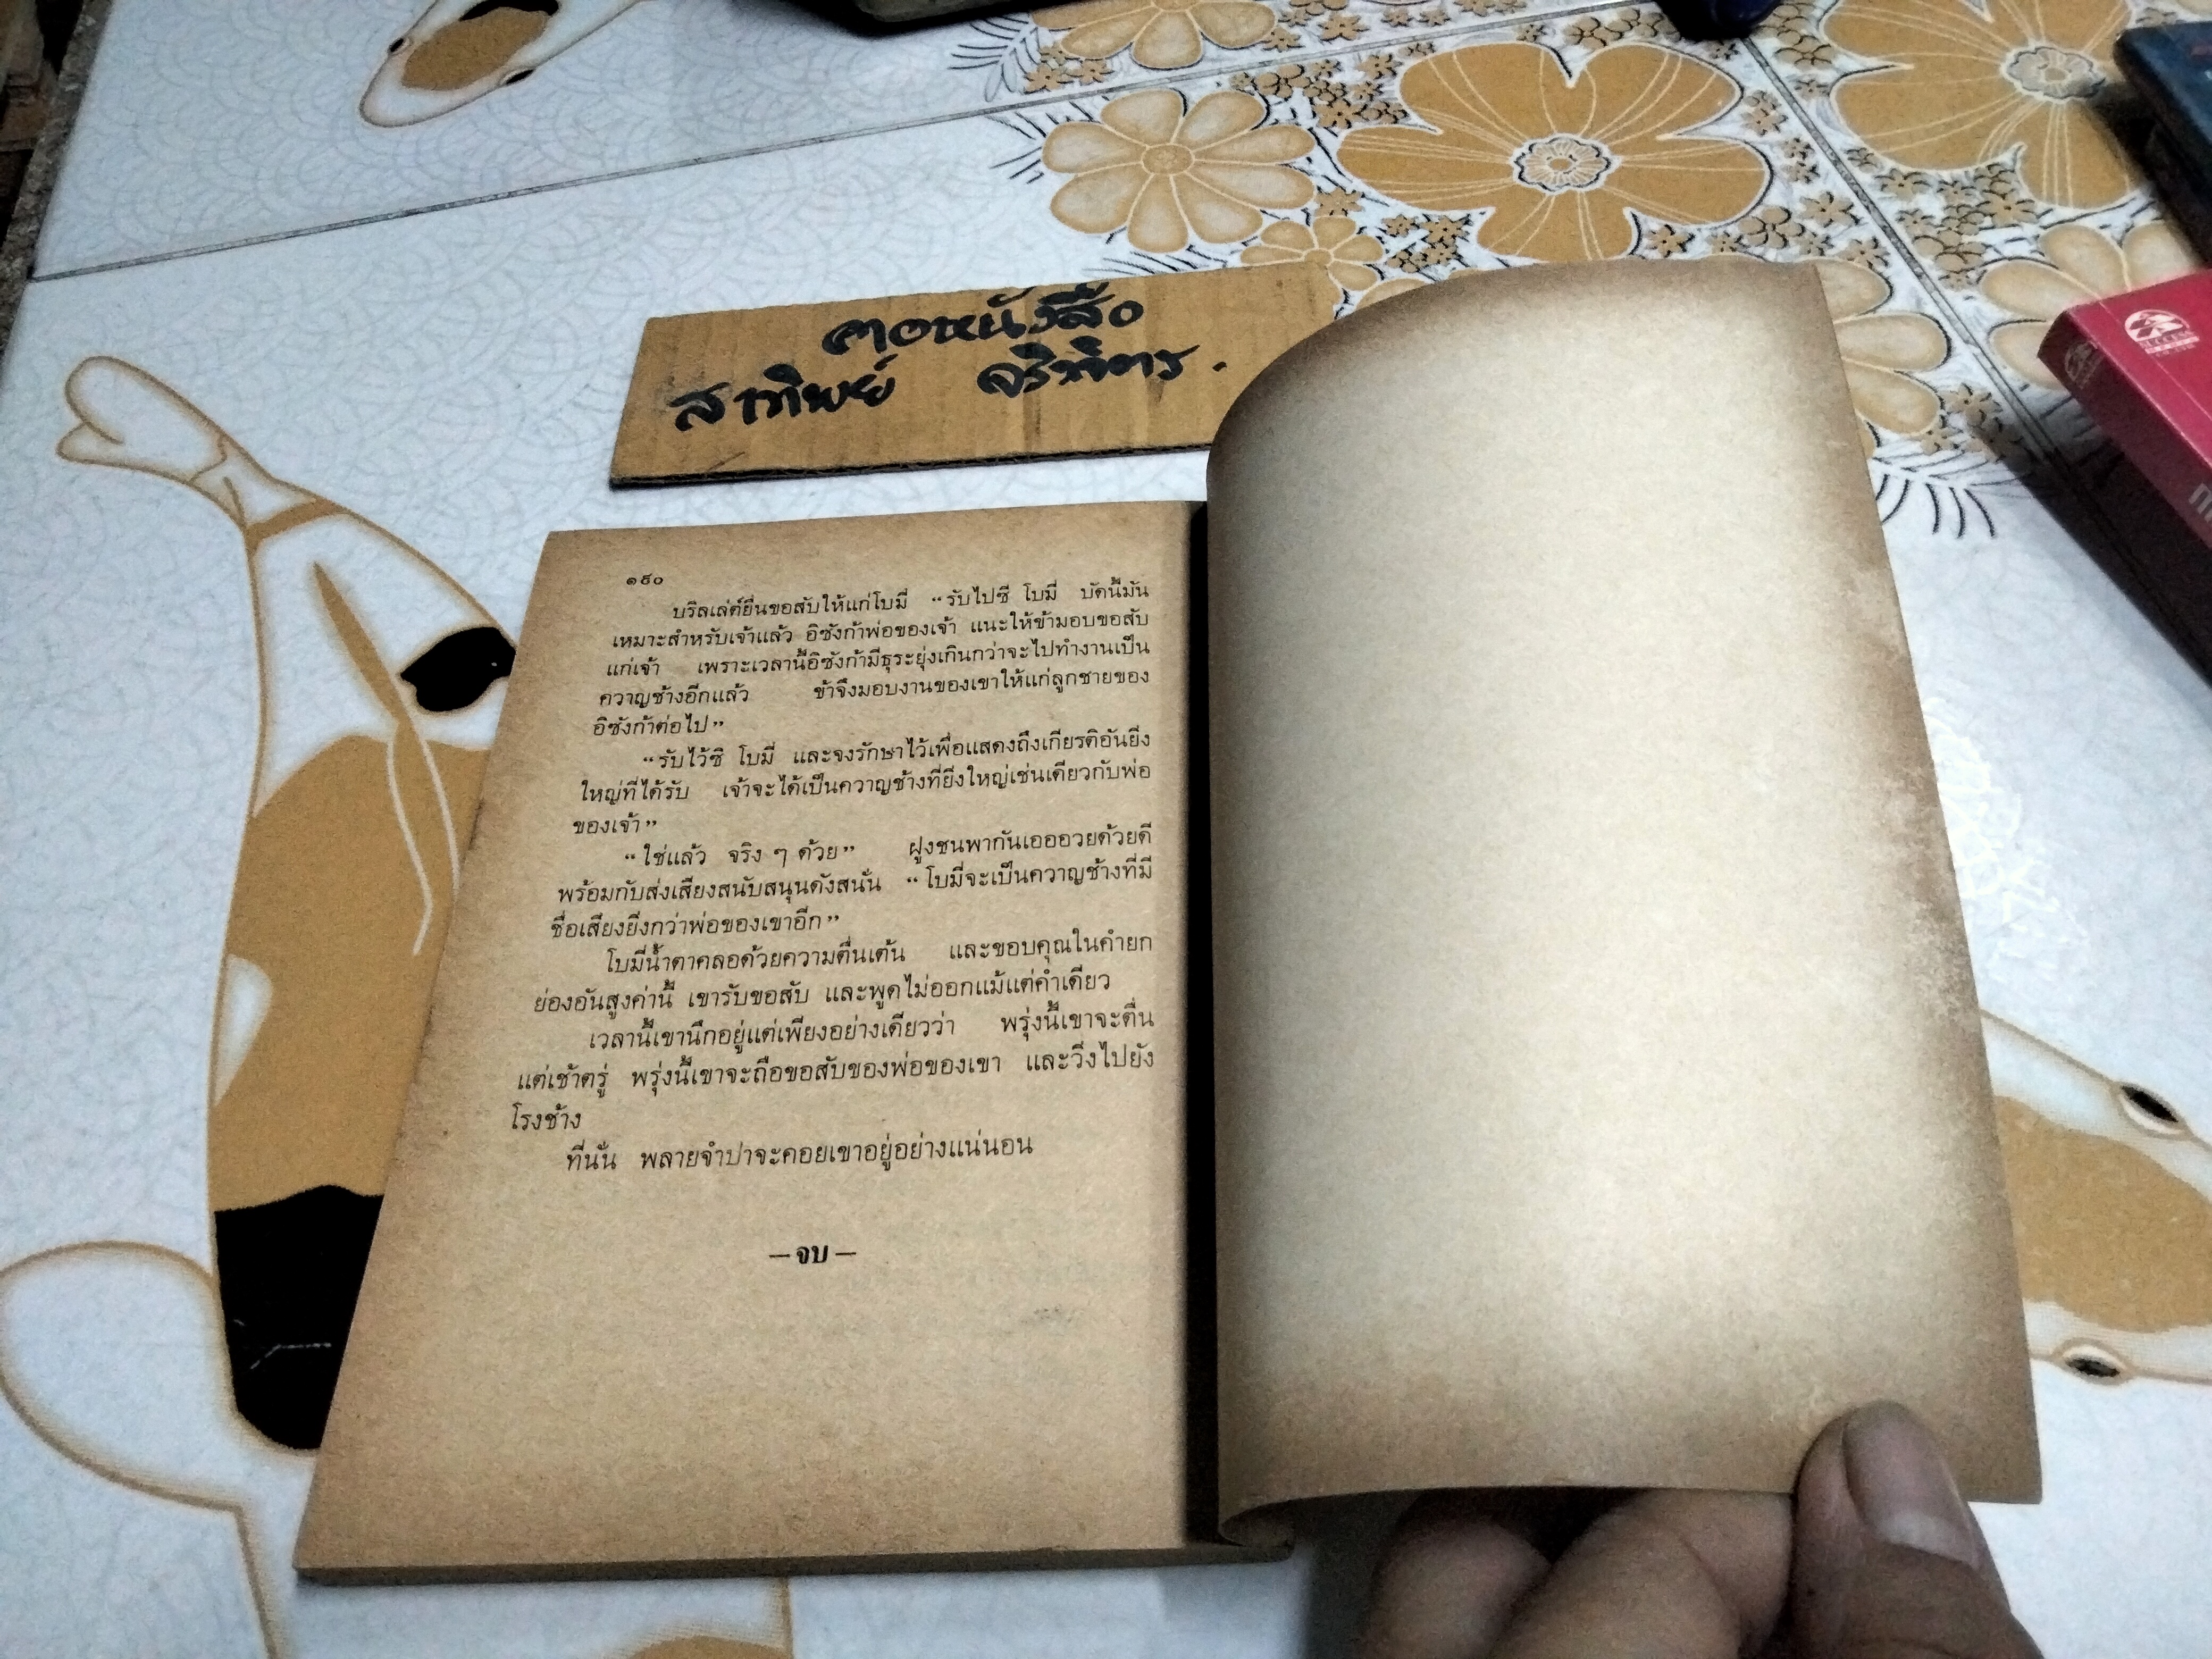 คอหนังสือ
สาทิพย์ จริพิตร.
SUCCESS
๑๕๐
บริลเล่ต์ยื่นขอสับให้แก่โบมี่ “รับไปซี โบมี่ บัดนี้มัน
เหมาะสำหรับเจ้าแล้ว อิซังก้าพ่อของเจ้า แนะให้ข้ามอบขอสับ
แก่เจ้า เพราะเวลานี้อิซังก้ามีธุระยุ่งเกินกว่าจะไปทำงานเป็น
ควาญช้างอีกแล้ว ข้าจึงมอบงานของเขาให้แก่ลูกชายของ
อิซังก้าต่อไป”
“รับไว้ซี โบมี่ และจงรักษาไว้เพื่อแสดงถึงเกียรติอันยิ่ง
ใหญ่ที่ได้รับ เจ้าจะได้เป็นควาญช้างที่ยิ่งใหญ่เช่นเดียวกับพ่อ
ของเจ้า”
“ใช่แล้ว จริง ๆ ด้วย” ฝูงชนพากันเอออวยด้วยดี
พร้อมกับส่งเสียงสนับสนุนดังสนั่น “โบมี่จะเป็นควาญช้างที่มี
ชื่อเสียงยิ่งกว่าพ่อของเขาอีก”
โบมี่น้ำตาคลอด้วยความตื่นเต้น และขอบคุณในคำยก
ย่องอันสูงค่านี้ เขารับขอสับ และพูดไม่ออกแม้แต่คำเดียว
เวลานี้เขานึกอยู่แต่เพียงอย่างเดียวว่า พรุ่งนี้เขาจะตื่น
แต่เช้าตรู่ พรุ่งนี้เขาจะถือขอสับของพ่อของเขา และวิ่งไปยัง
โรงช้าง
ที่นั่น พลายจำปาจะคอยเขาอยู่อย่างแน่นอน
— จบ —